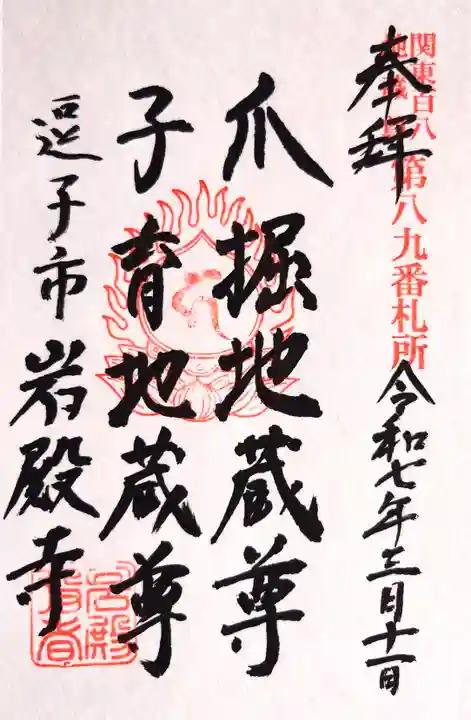 奉拝
関東百八
地蔵
第八九番札所
令和七年三月十一日
爪掘地蔵尊
子育地蔵尊
逗子市岩殿寺